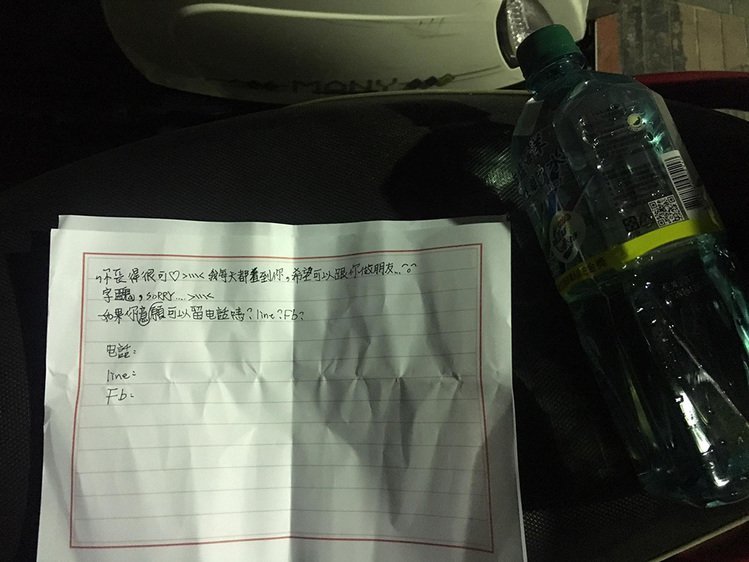 MANY
你長得很可♡>\\\< 我每天都看到你,希望可以跟你做朋友...^o^
字醜,SORRY....>\\\<
如果你意願可以留电話嗎?line?Fb?
电話:
line:
Fb: